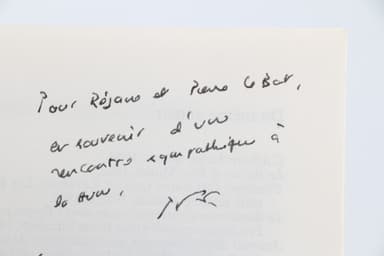 Pour Réjane et Pierre Le Bot,
en souvenir d'une
rencontre sympathique à
la